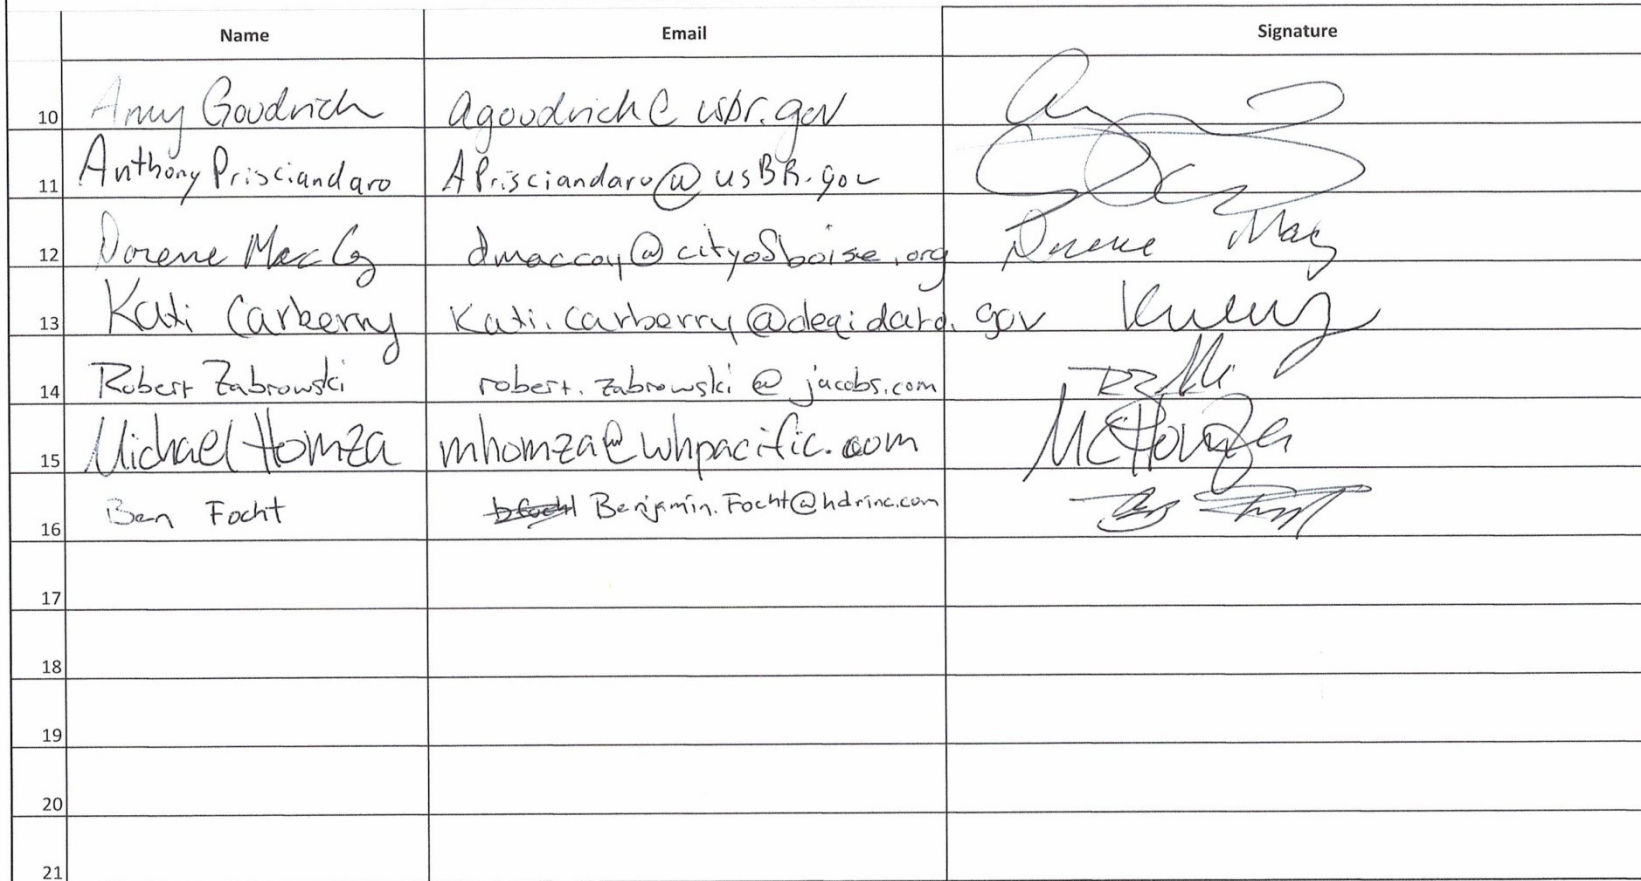 Name Email Signature
10 Amy Goodrich agoodrich@usbr.gov
11 Anthony Prisciandaro APrisciandaro@usBR.gov
12 Dorene MacCoy dmaccoy@cityofboise.org
13 Kati Carberry Kati.carberry@deq.idaho.gov
14 Robert Zabrowski robert.zabrowski@jacobs.com
15 Michael Homza mhomza@whpacific.com MCHomza
16 Ben Focht Benjamin.Focht@hdrinc.com
17
18
19
20
21